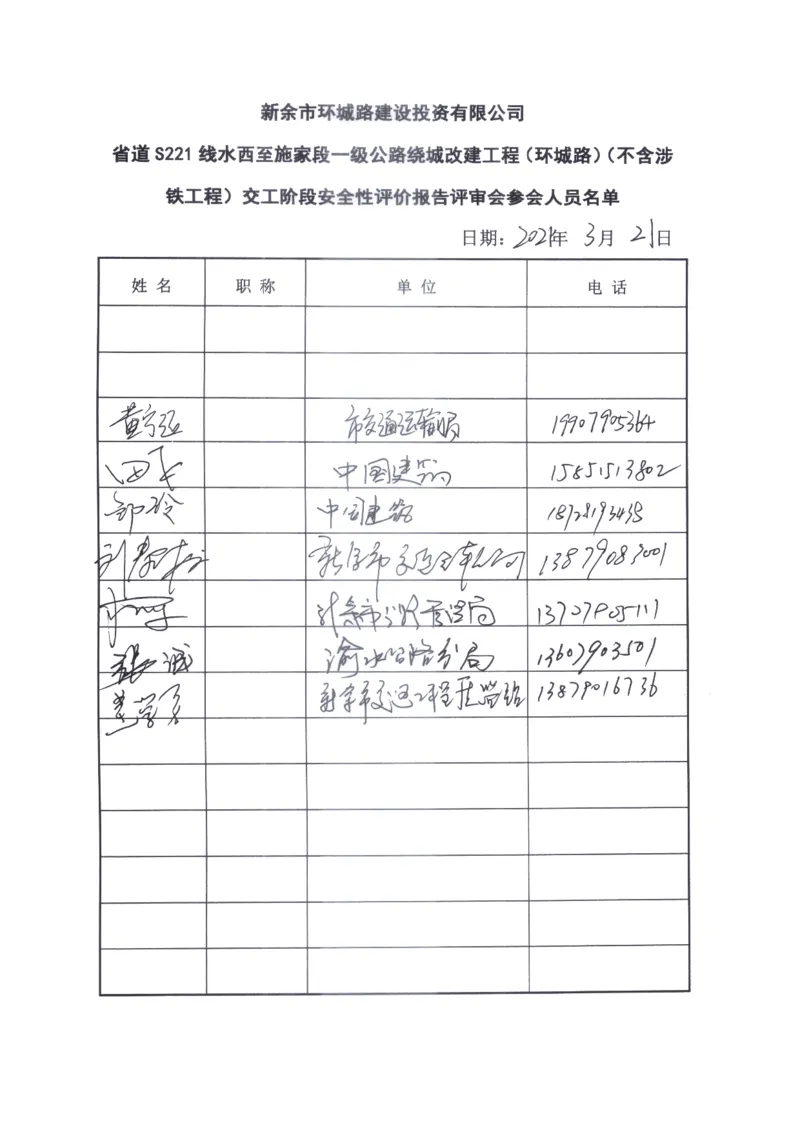 新余市环城路建设投资有限公司
省道 S221 线水西至施家段一级公路绕城改建工程（环城路）（不含涉
铁工程）交工阶段安全性评价报告评审会参会人员名单
日期：2021年 3月 21日
姓 名 职 称 单 位 电 话
市交通运输局 19907905364
中国建筑 15851513802
邹玲 中国建筑
13879083001
新余市公路管理局 13707905111
张诚 渝水公路分局 13607903501
新余市交通工程质监站 13879016736